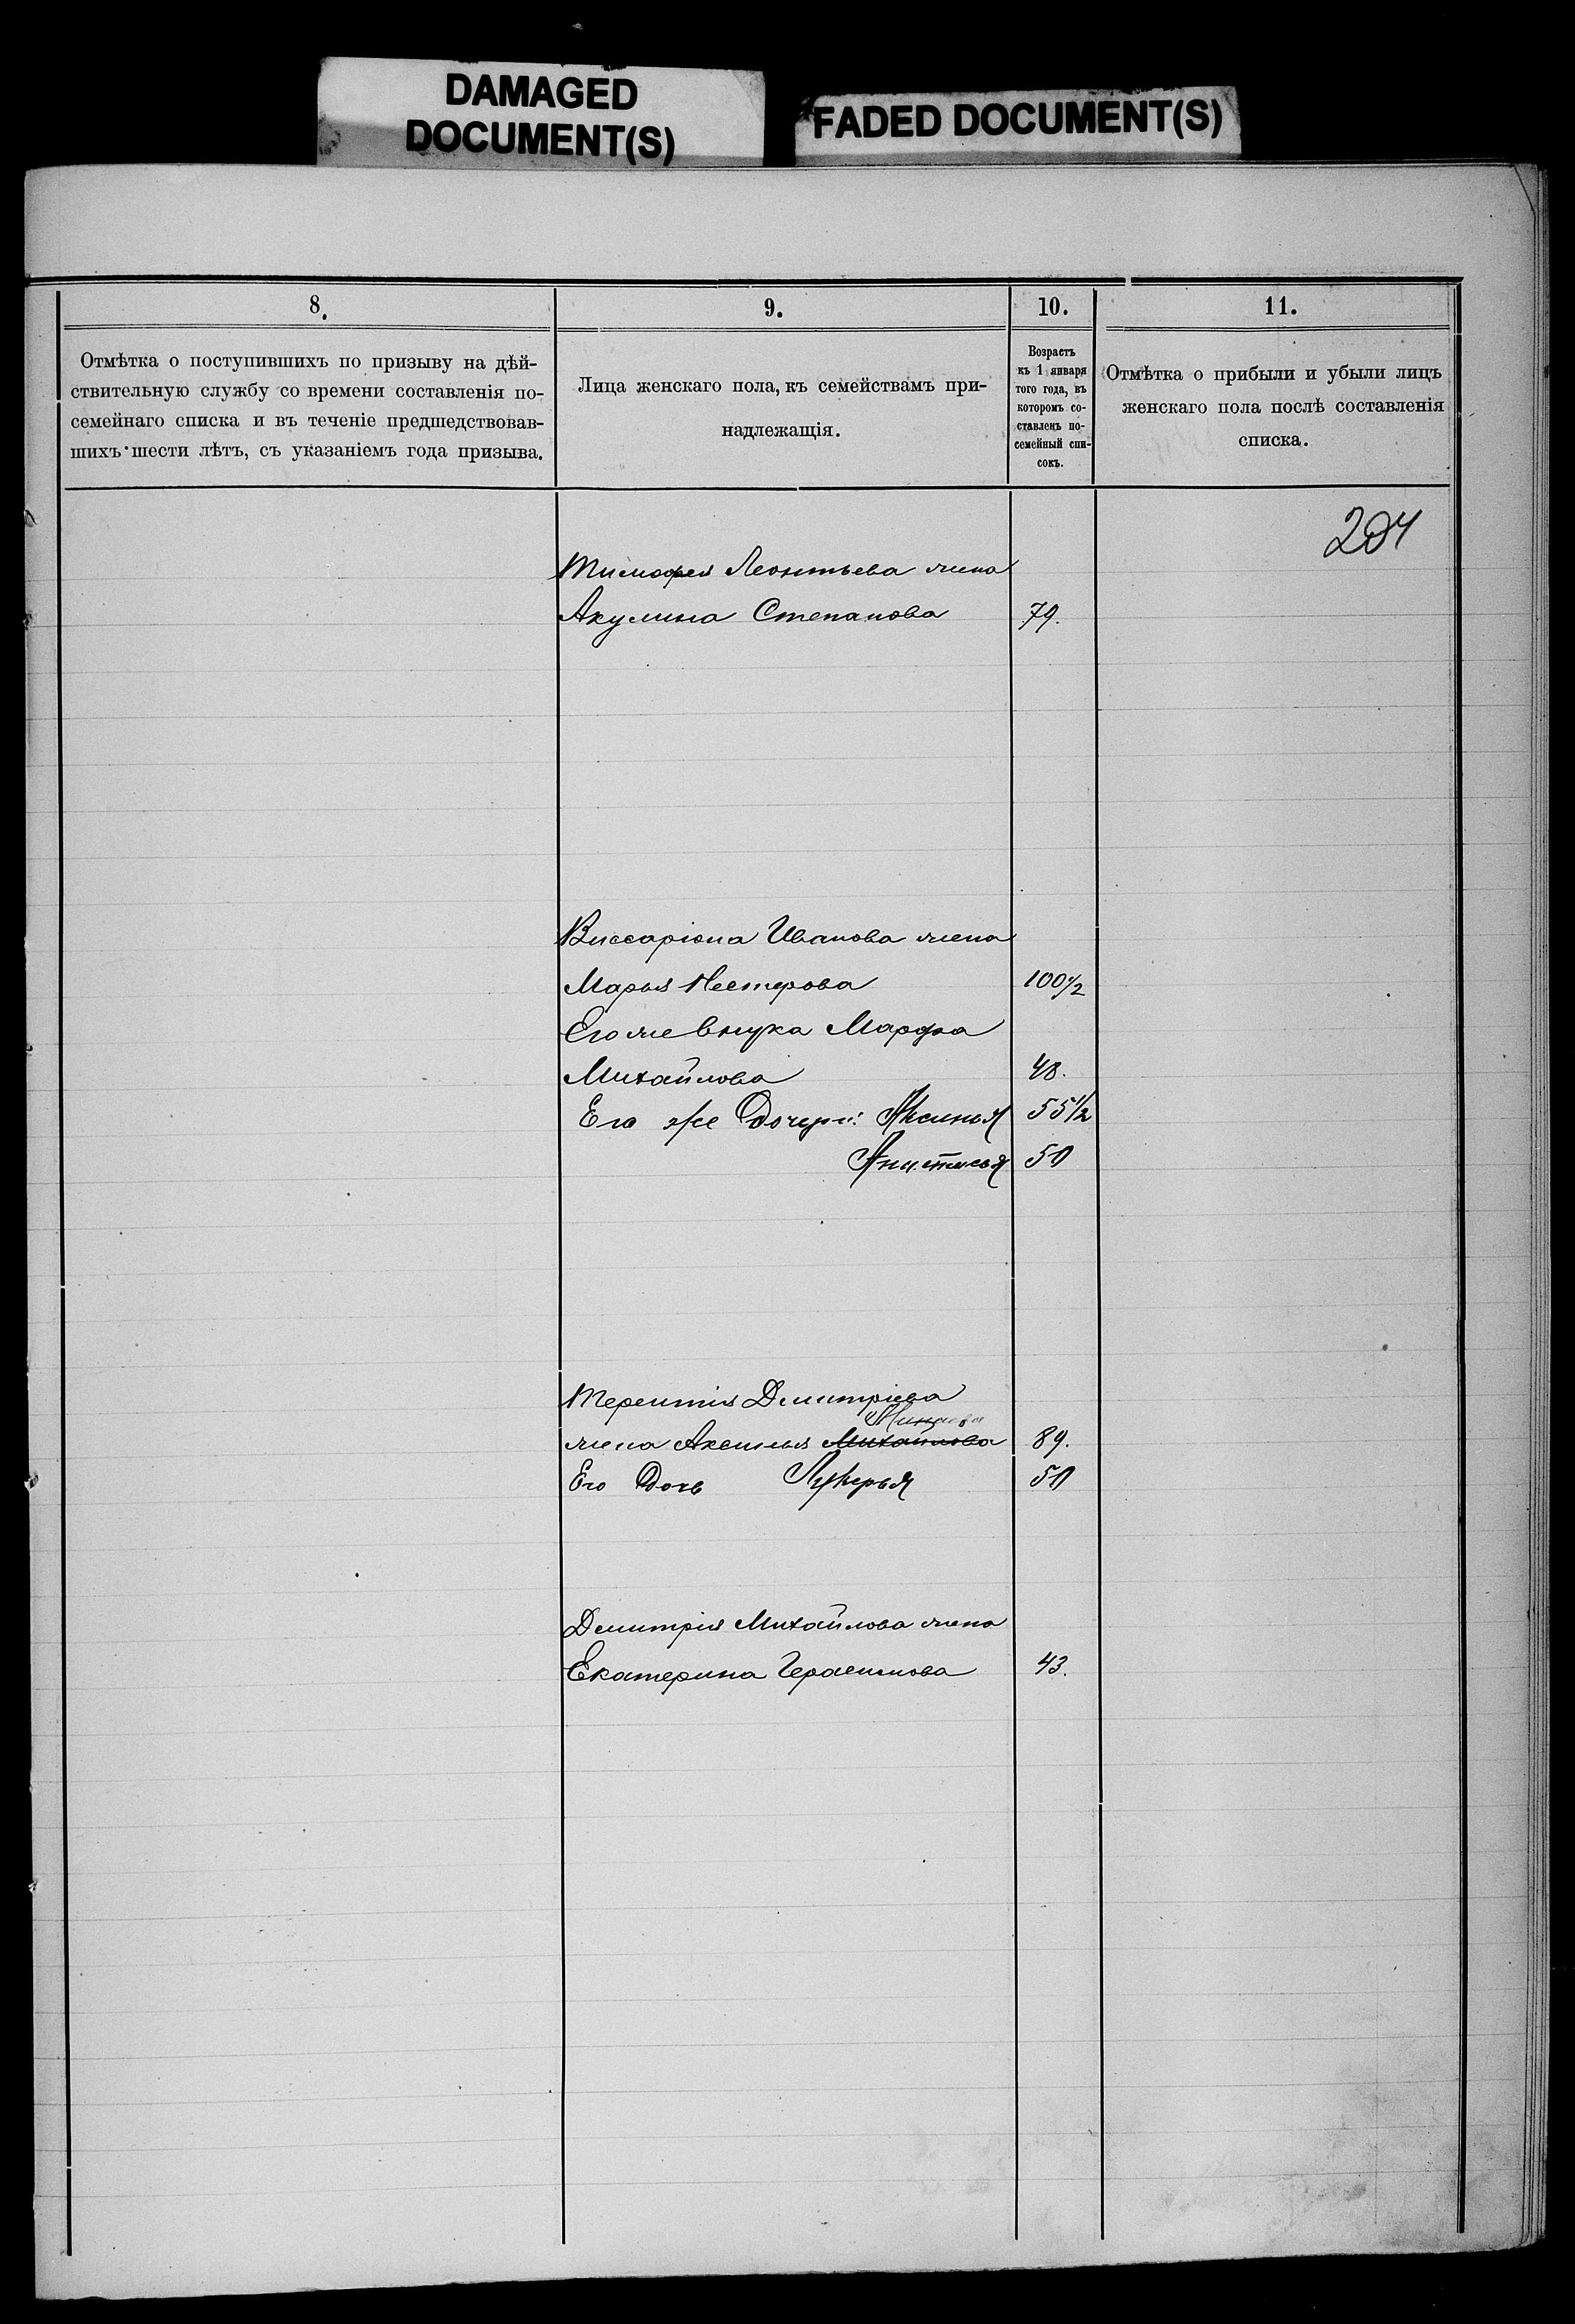 DAMAGED
DOCUMENT(S)
FADED DOCUMENT(S)
8.
9.
10.
11.
Отмѣтка о поступившихъ по призыву на дѣй-
ствительную службу со времени составленія по-
семейнаго списка и въ теченіе предшедствовав-
шихъ шести лѣтъ, съ указаніемъ года призыва.
Лица женскаго пола, къ семействамъ при-
надлежащія.
Возрастъ
къ 1 января
того года, въ
которомъ со-
ставленъ по-
семейный спи-
сокъ.
Отмѣтка о прибыли и убыли лицъ
женскаго пола послѣ составленія
списка.
Тимофея Леонтьева жена
Акулина Степанова 79.
Виссаріона Иванова жена
Марья Нестерова 100½
Его же внука Марфа
Михайлова 48.
Его же Дочери: Аксинья 55½
50
Терентія Дмитріева
жена Аксинья Михайлова 89.
Его Дочь Лукерья 50
Дмитрія Михайлова жена
Екатерина Герасимова 43.